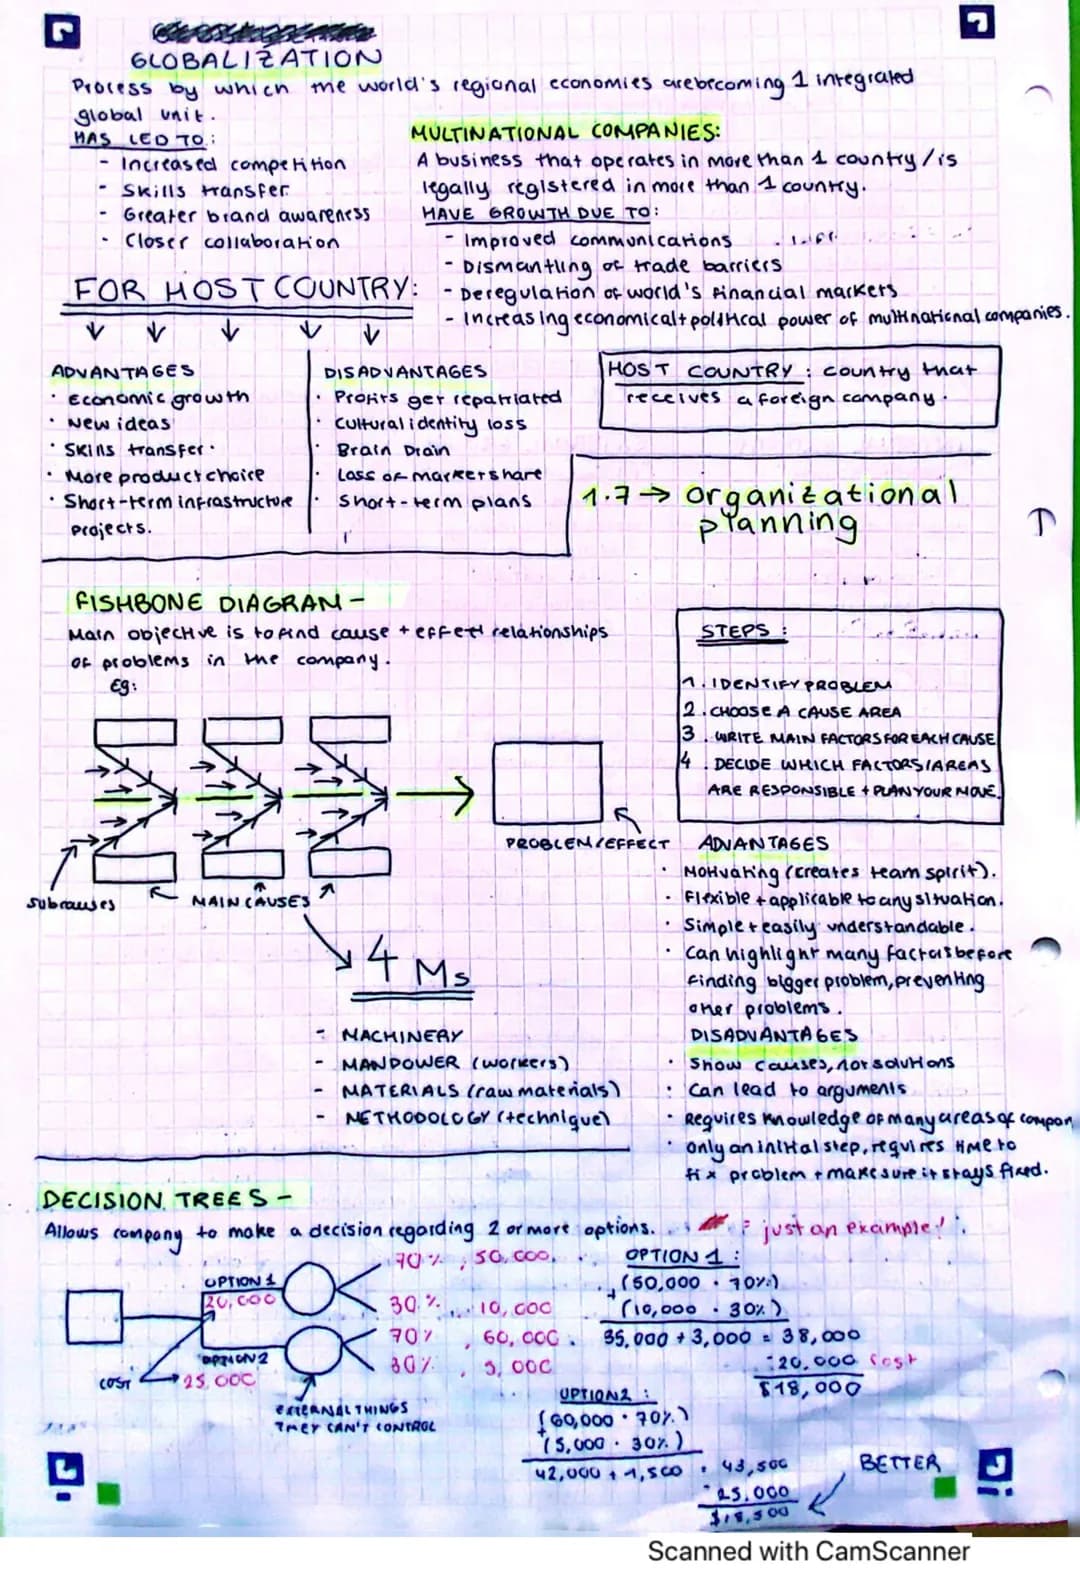 GLOBALIZATION
Process by which the world's regional economies are becoming 1 integrated
global unit.
HAS LED TO:
- Increased competition
- Skills transfer
- Greater brand awareness
- Closer collaboration
MULTINATIONAL COMPANIES:
A business that operates in more than 1 country/is
legally registered in more than 1 country.
HAVE GROWTH DUE TO:
- Improved communications
- Dismantling of trade barriers
- Deregulation of world's financial markets
- Increasing economical + political power of multinational companies.
FOR HOST COUNTRY:
ADVANTAGES
· Economic growth
· New ideas
· Skills transfer.
· More product choice
· Short-term infrastructure
projects.
DISADVANTAGES
· Profits get repatriated
· Cultural identity loss
· Brain Drain
· Loss of market share
· Short-term plans
HOST COUNTRY: country that
receives a foreign company.
1.7 → organizational
planning
FISHBONE DIAGRAM -
Main objective is to find cause + effect relationships
of problems in the company.
Eg:
PROBLEM/EFFECT
subcauses
MAIN CAUSES
4 Ms
- MACHINERY
- MANPOWER (workers)
- MATERIALS (raw materials)
- METHODOLOGY (technique)
STEPS:
1. IDENTIFY PROBLEM
2. CHOOSE A CAUSE AREA
3. WRITE MAIN FACTORS FOR EACH CAUSE
4. DECIDE WHICH FACTORS/AREAS
ARE RESPONSIBLE + PLAN YOUR MOVE.
ADVANTAGES
· Motivating (creates team spirit).
· Flexible + applicable to any situation.
· Simple + easily understandable.
· Can highlight many factors before
finding bigger problem, preventing
other problems.
DISADVANTAGES
· Show causes, not solutions
· Can lead to arguments
· Requires knowledge of many areas of compan
· only an initial step, requires time to
fix problem + make sure it stays fixed.
DECISION TREES -
Allows company to make a decision regarding 2 or more options.
= just an example!
OPTION 1
20,000
70%, 50,000
30%, 10,000
OPTION 2
25,000
70%, 60,000
30%, 5,000
COST
EXTERNAL THINGS
THEY CAN'T CONTROL
OPTION 1:
(50,000 · 70%)
+
(10,000 · 30%)
35,000 + 3,000 = 38,000
-20,000 cost
$18,000
OPTION 2:
(60,000 · 70%)
+
(5,000 · 30%)
42,000 + 1,500 = 43,500
-25,000
$18,500
BETTER
Scanned with CamScanner